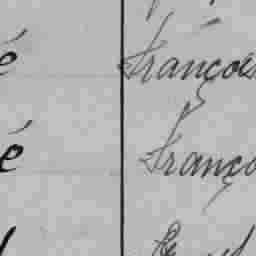 é Françoi
é Franço